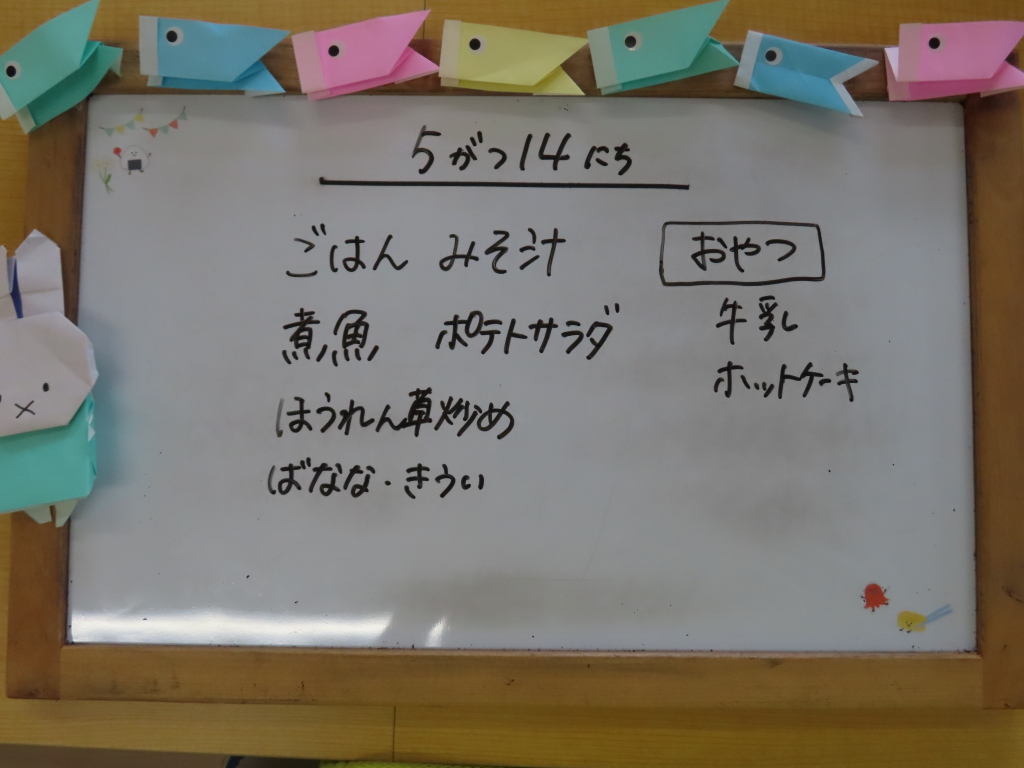 5がつ14にち
ごはん みそ汁
煮魚 ポテトサラダ
ほうれん草炒め
ばなな・きうい
おやつ
牛乳
ホットケーキ